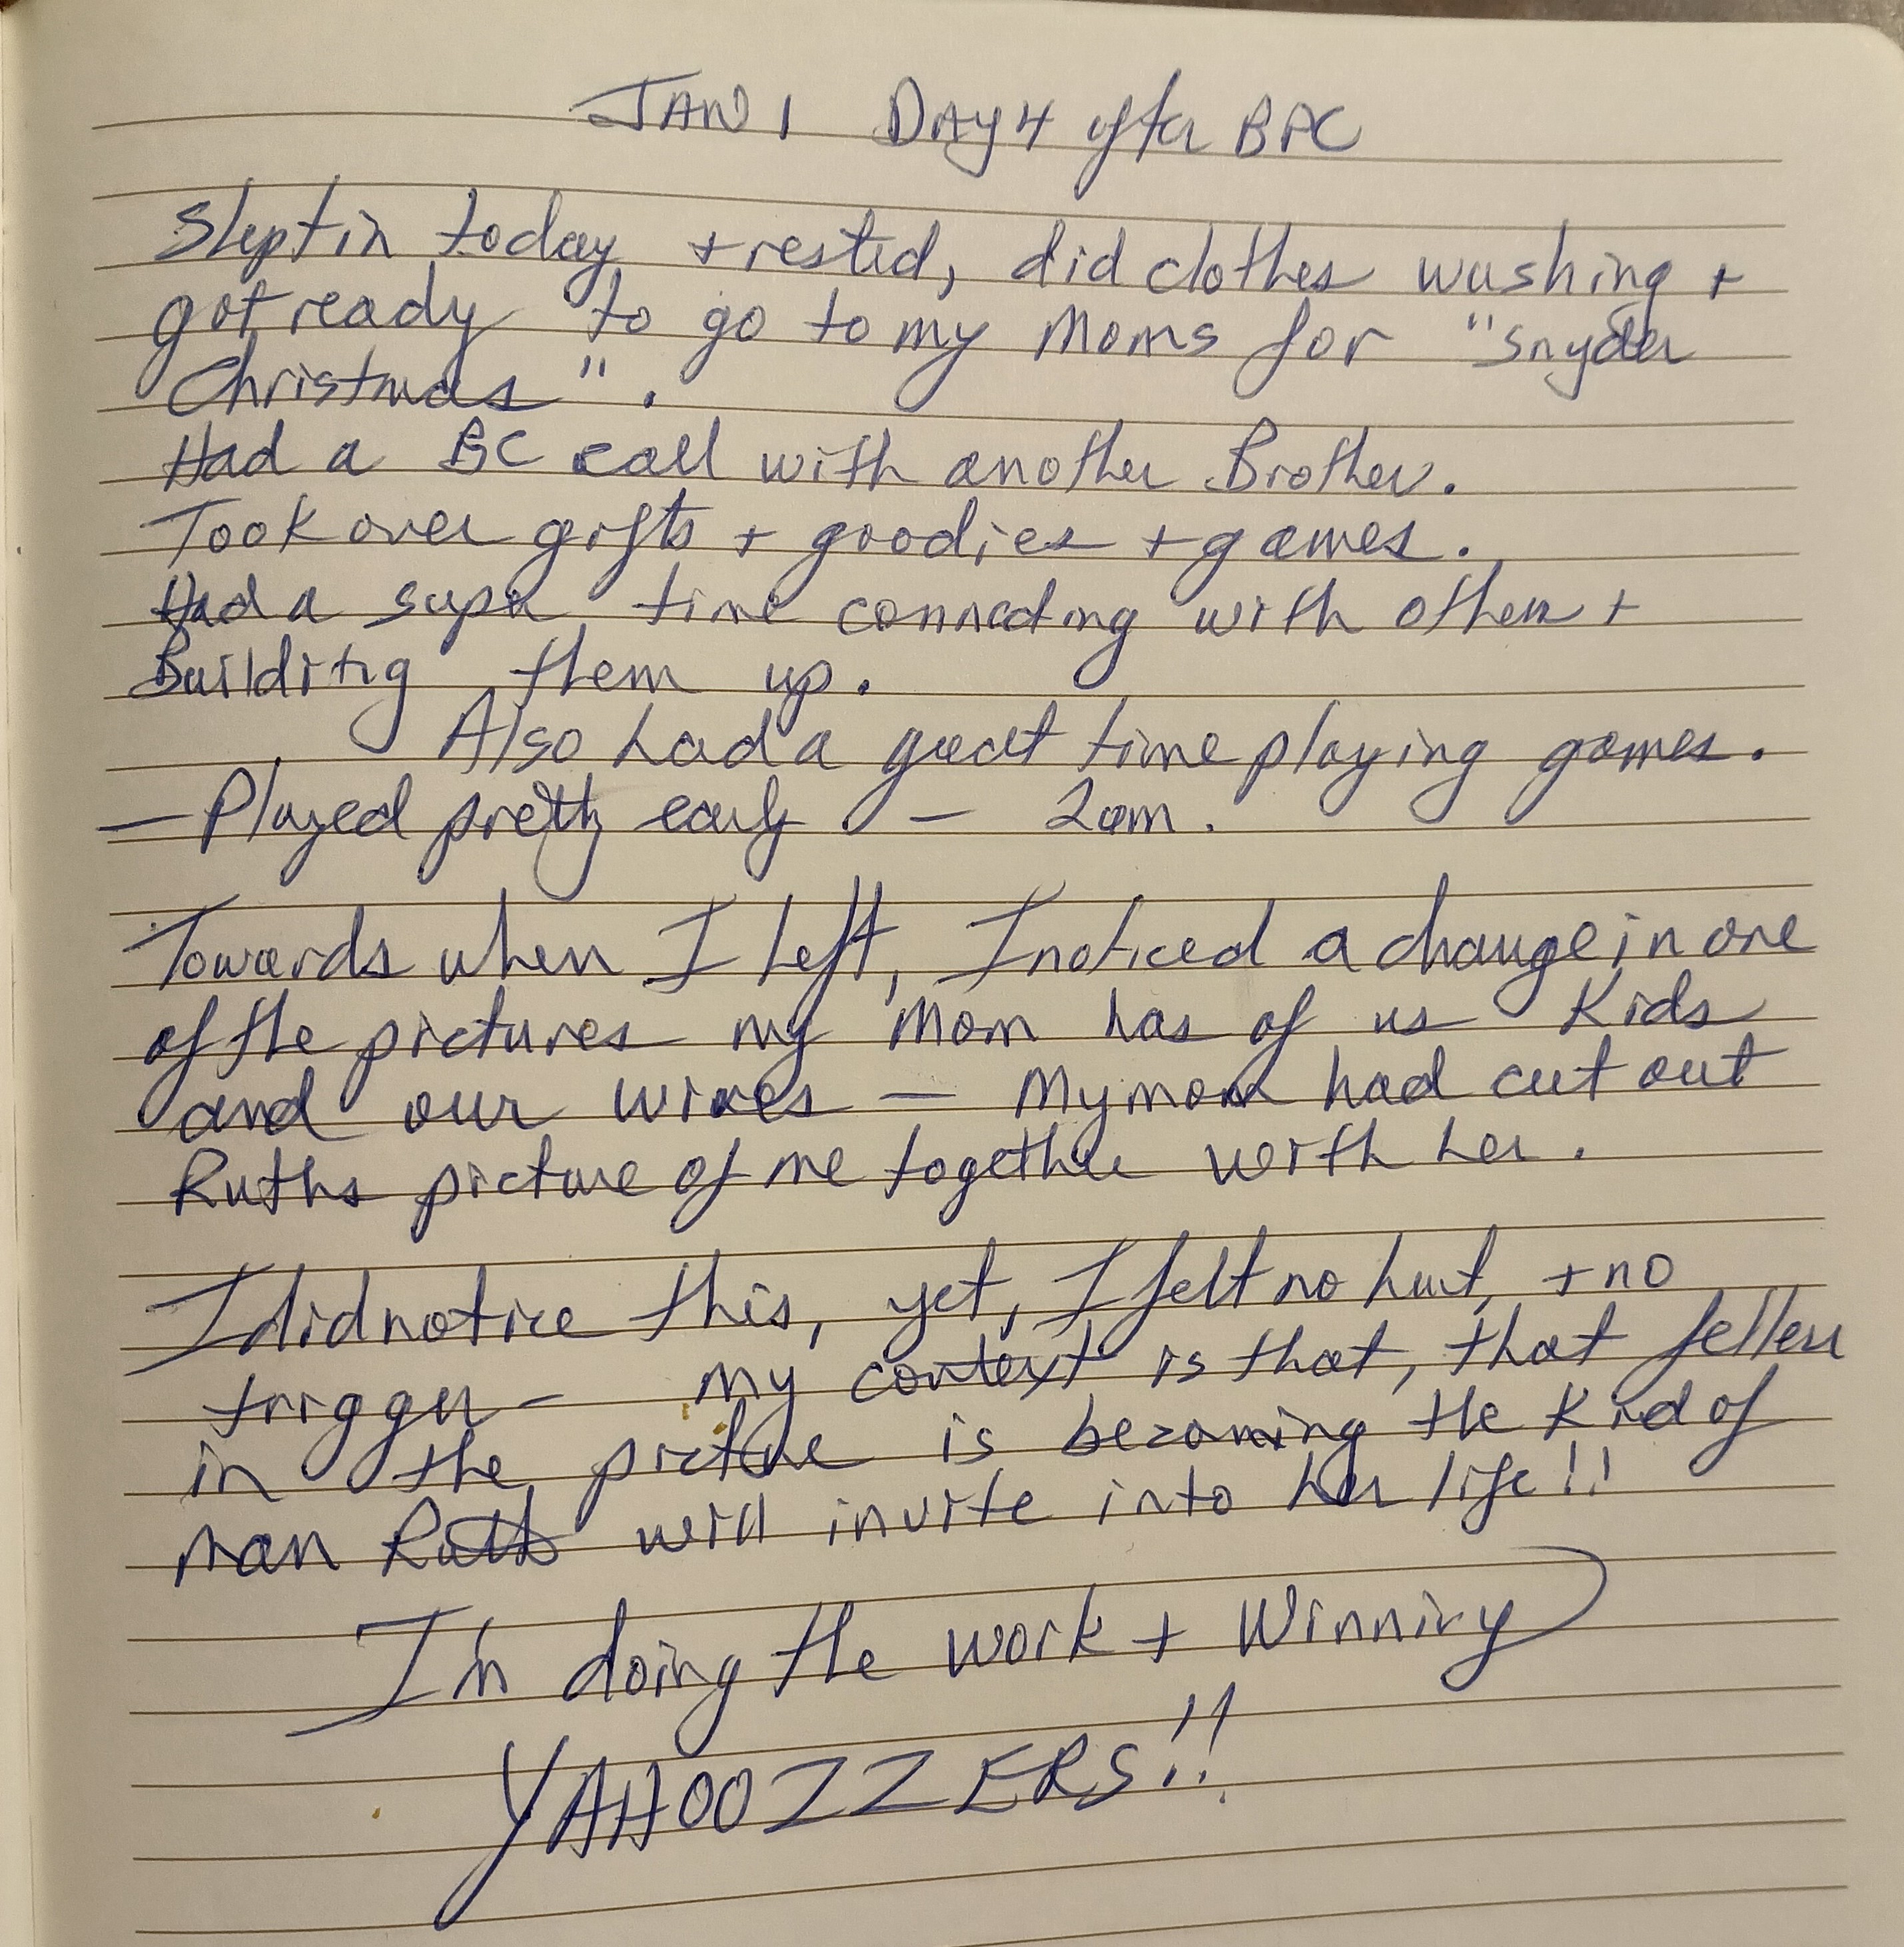 JAN 1 DAY 4 after BPC
Slept in today + rested, did clothes washing +
got ready to go to my Moms for "Snyder
Christmas".
Had a BC call with another Brother.
Took over gifts + goodies + games.
Had a super time connecting with others +
Building them up.
Also had a great time playing games.
— Played pretty early — 2am.
Towards when I left, I noticed a change in one
of the pictures my Mom has of us Kids
and our wives — My mom had cut out
Ruths picture of me together with her.
I did notice this, yet, I felt no hurt, + no
trigger - my context is that, that feller
in the picture is becoming the kind of
man Ruth will invite into her life!!
I'm doing the work + Winning
YAHOOZZERS!!